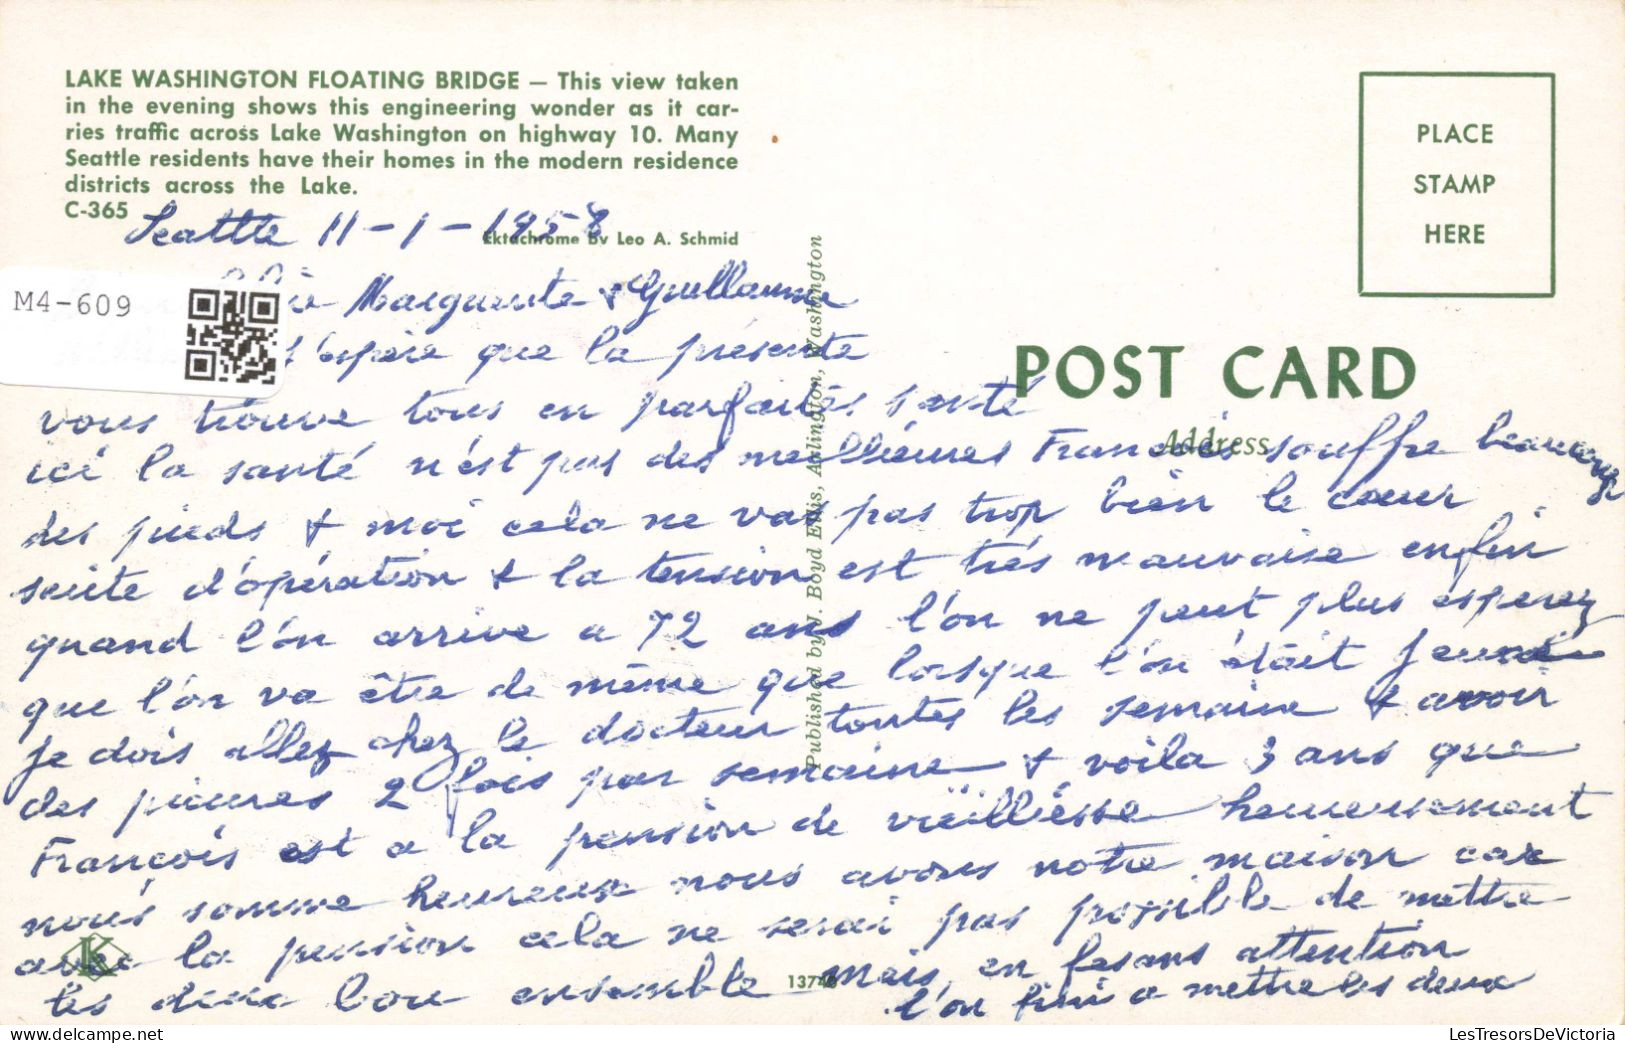 LAKE WASHINGTON FLOATING BRIDGE — This view taken
in the evening shows this engineering wonder as it car-
ries traffic across Lake Washington on highway 10. Many
Seattle residents have their homes in the modern residence
districts across the Lake.
C-365
Ektachrome by Leo A. Schmid
PLACE
STAMP
HERE
POST CARD
Address
Published by J. Boyd Ellis, Arlington, Washington
13748
M4-609
Seattle 11-1-1958
Marguerite & Guillaume
j'espère que la présente
vous trouve tous en parfaités santé
ici la santé n'est pas des meilléures François souffre beaucoup
des pieds & moi cela ne vas pas trop bien le cœur
suite d'opération & la tension est très mauvaise enfin
quand l'on arrive a 72 ans l'on ne peut plus esperez
que l'on va être de même que losque l'on était jeune
je dois allez chez le docteur toutes les semaine & avoir
des piqures 2 fois par semaine & voila 3 ans que
François est a la pension de vieillésse heureusement
nous somme heureux nous avons notre maison car
avec la pension cela ne serai pas possible de mettre
les deux bou ensemble mais, en fesans attention
l'on fini a mettre les deux
LesTresorsDeVictoria